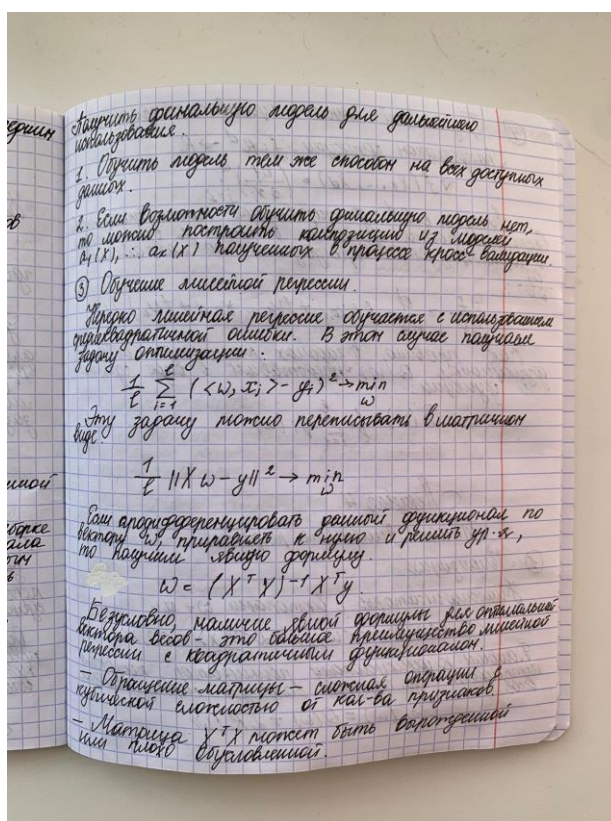 едшин
ов
нной
борке
ала
ым
ь
Получить финальную модель для дальнейшего
использования.
1. Обучить модель тем же способом на всех доступных
данных.
2. Если возможности обучить финальную модель нет,
то можно построить композицию из моделей
a₁(X), ... aₖ(X) полученных в процессе кросс-валидации.
③ Обучение линейной регрессии.
Нередко линейная регрессия обучается с использованием
среднеквадратичной ошибки. В этом случае получаем
задачу оптимизации:
1/l Σ i=1 l (<w, xᵢ> - yᵢ)² → min w
Эту задачу можно переписывать в матричном
виде:
1/l ||Xw - y||² → min w
Если продифференцировать данный функционал по
вектору w, приравнять к нулю и решить ур-я,
то получим явную формулу.
w = (XᵀX)⁻¹Xᵀy.
Безусловно, наличие явной формулы для оптимальной
вектора весов - это большое преимущество линейной
регрессии с квадратичным функционалом.
- Обращение матрицы - сложная операция с
кубической сложностью от кол-ва признаков.
- Матрица XᵀX может быть вырожденной
или плохо обусловленной.